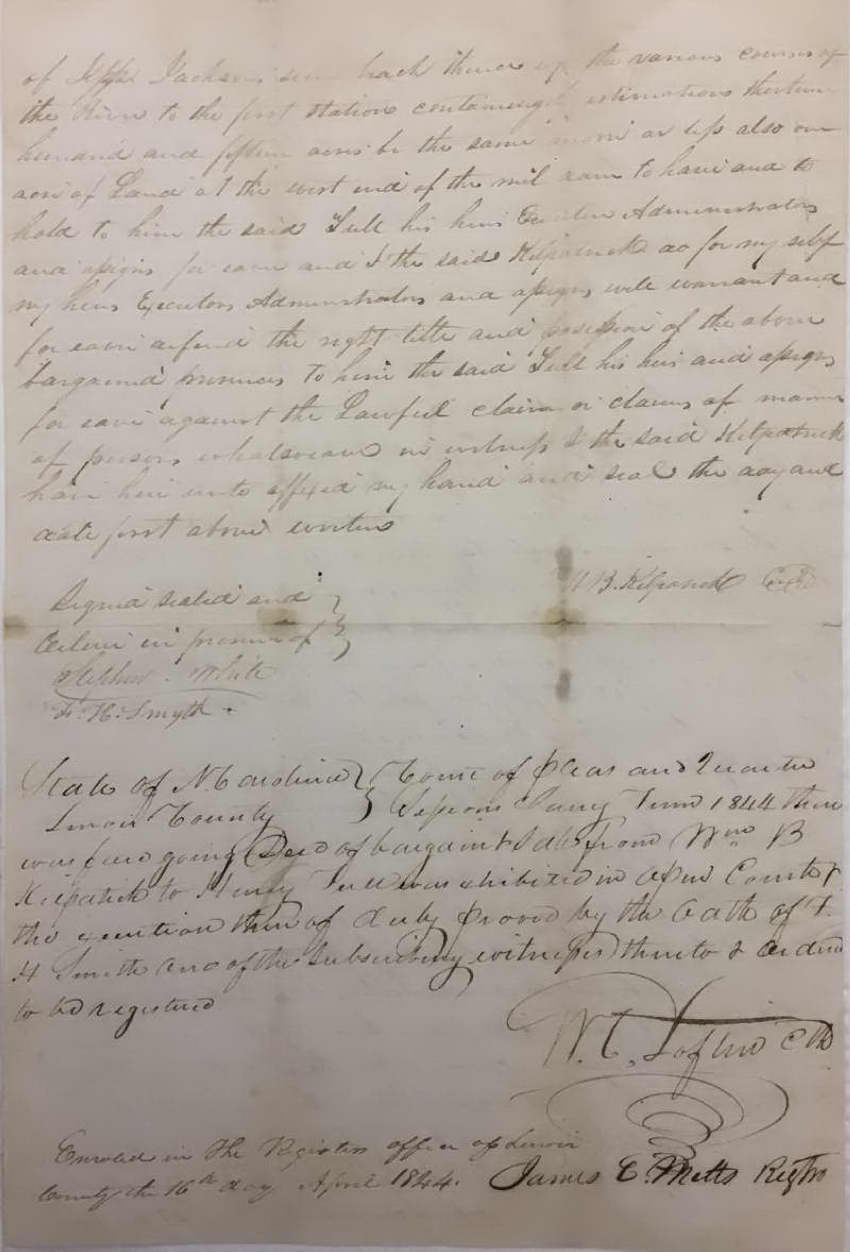 of Jesse Jackson's back thence up the various courses of
the River to the first station containing estimation thirteen
hundred and fifteen acres be the same more or less also one
acre of Land at the west end of the mil to have and to
hold to him the said Tull his heirs Executors Administrators
and assigns for ever and I the said Kilpatrick do for my self
my heirs Executors Administrators and assigns will warrant and
for ever defend the right title and possession of the above
bargained premises to him the said Tull his heirs and assigns
for ever against the Lawful claim or claims of
of persons whatsoever in witness I the said Kilpatrick
have here unto affixed my hand and seal the day and
date first above written
W B. Kilpatrick
Signed sealed and
in presence of
Stephen White
F. H. Smyth
State of N Carolina } Court of Pleas and Quarter
Lenoir County } Sessions Term 1844 then
was fore going Deed of bargain & Sale from Wm B
Kilpatrick to Henry Tull was exhibited in open Court &
the execution thereof duly proved by the Oath of F.
H Smith one of the Subscribing witnesses thereto & Ordered
to be registered
W. C. Loftin Clk
Enroled in The Registers office of Lenoir
County the 16th day April 1844. James C. Metts Regtr